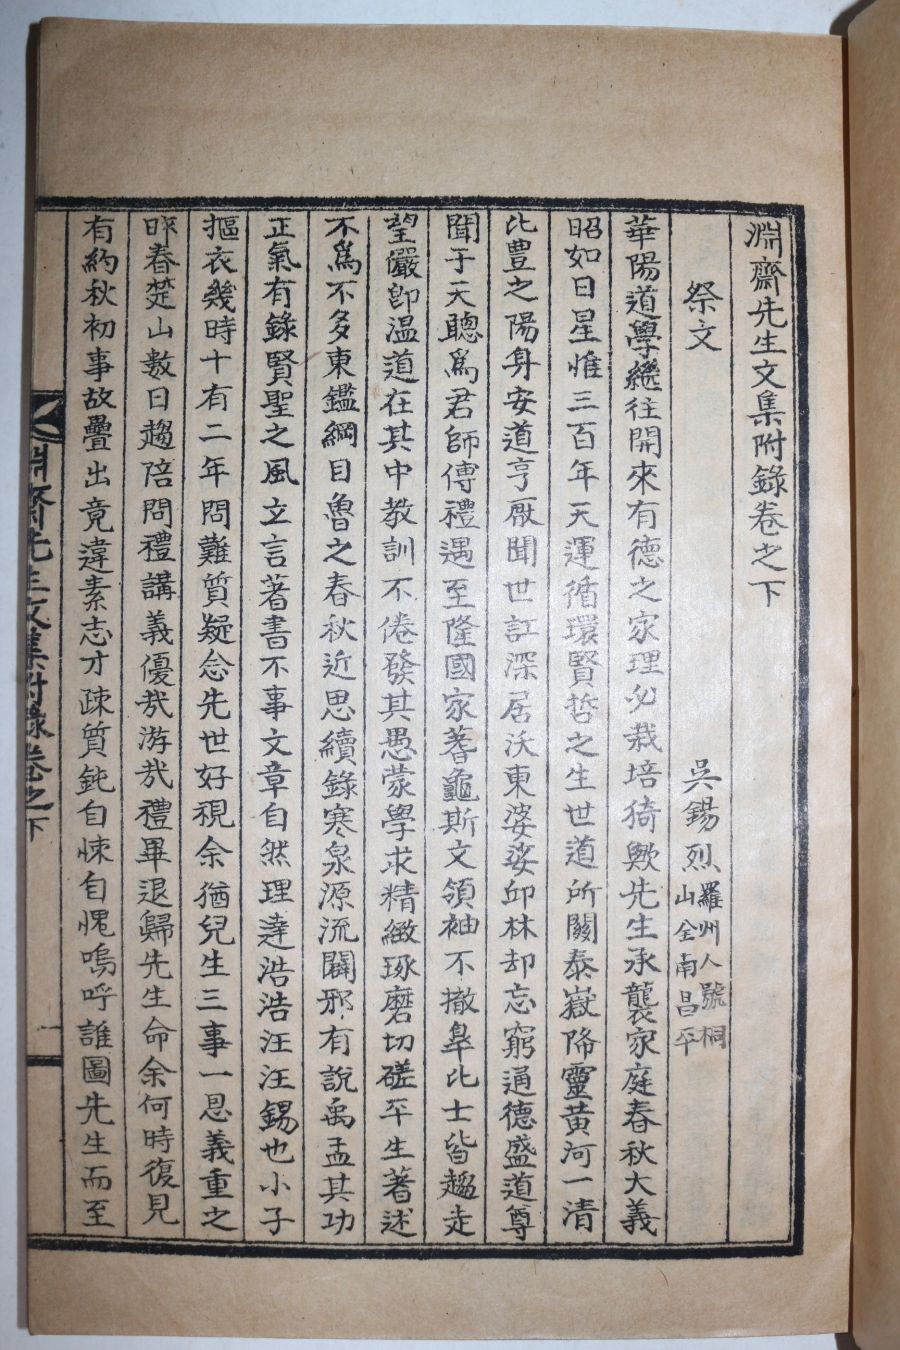 淵齋先生文集附錄卷之下
祭文
吳錫烈 羅州人號桐山全南昌平
華陽道學繼往開來有德之家理必栽培猗歟先生承襲家庭春秋大義
昭如日星惟三百年天運循環賢哲之生世道所關泰嶽降靈黃河一清
比豊之陽身安道亨厥聞世訌深居沃東婆娑邱林却忘窮通德盛道尊
聞于天聰爲君師傅禮遇至隆國家蓍龜斯文領袖不撤臯比士皆趨走
望儼卽温道在其中教訓不倦發其愚蒙學求精緻琢磨切磋平生著述
不爲不多東鑑綱目魯之春秋近思續錄寒泉源流闢邪有說禹孟其功
正氣有錄賢聖之風立言著書不事文章自然理達浩浩汪汪錫也小子
摳衣幾時十有二年問難質疑念先世好視余猶兒生三事一恩義重之
昨春楚山數日趨陪問禮講義優哉游哉禮畢退歸先生命余何時復見
有約秋初事故疊出竟違素志才疎質鈍自悚自愧嗚呼誰圖先生而至
淵齋先生文集附錄卷之下 一